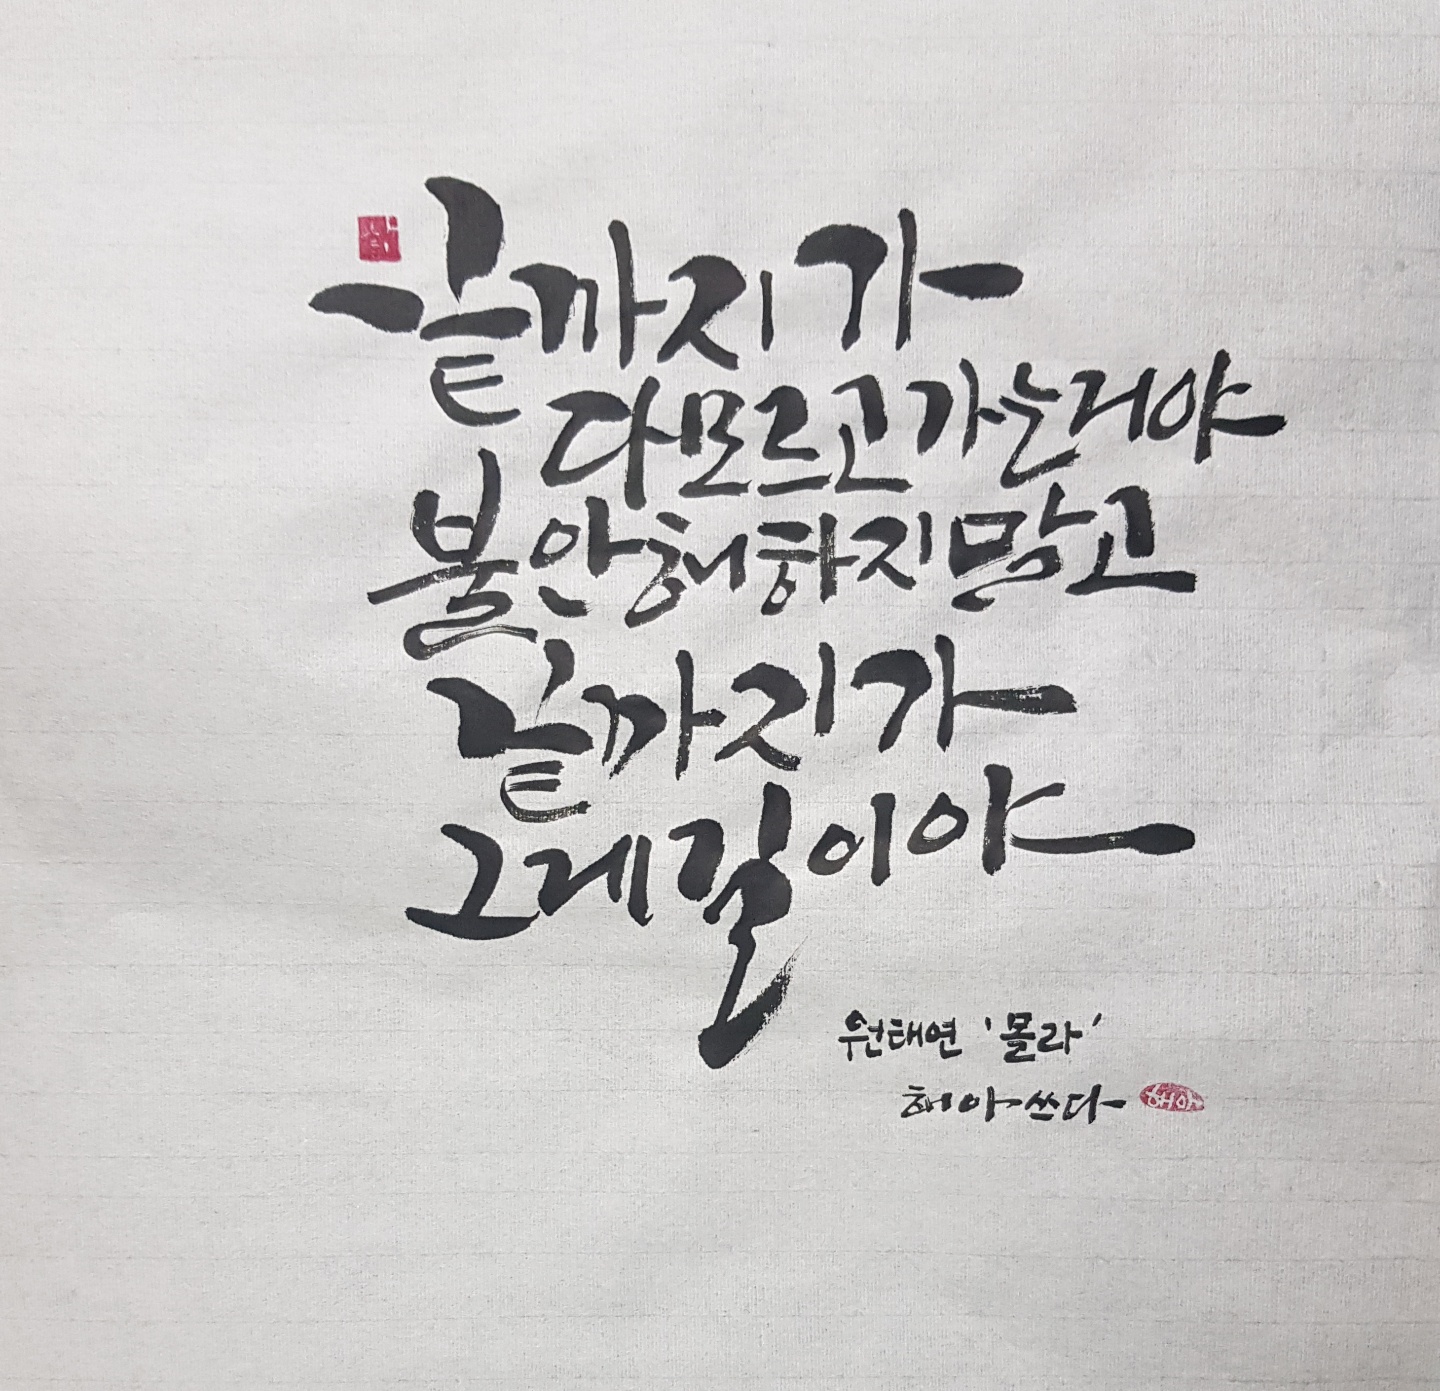 끝까지 가
다 모르고 가는거야
불안해하지 말고
끝까지 가
그게 길이야
원태연 '몰라'
해아 쓰다
해아